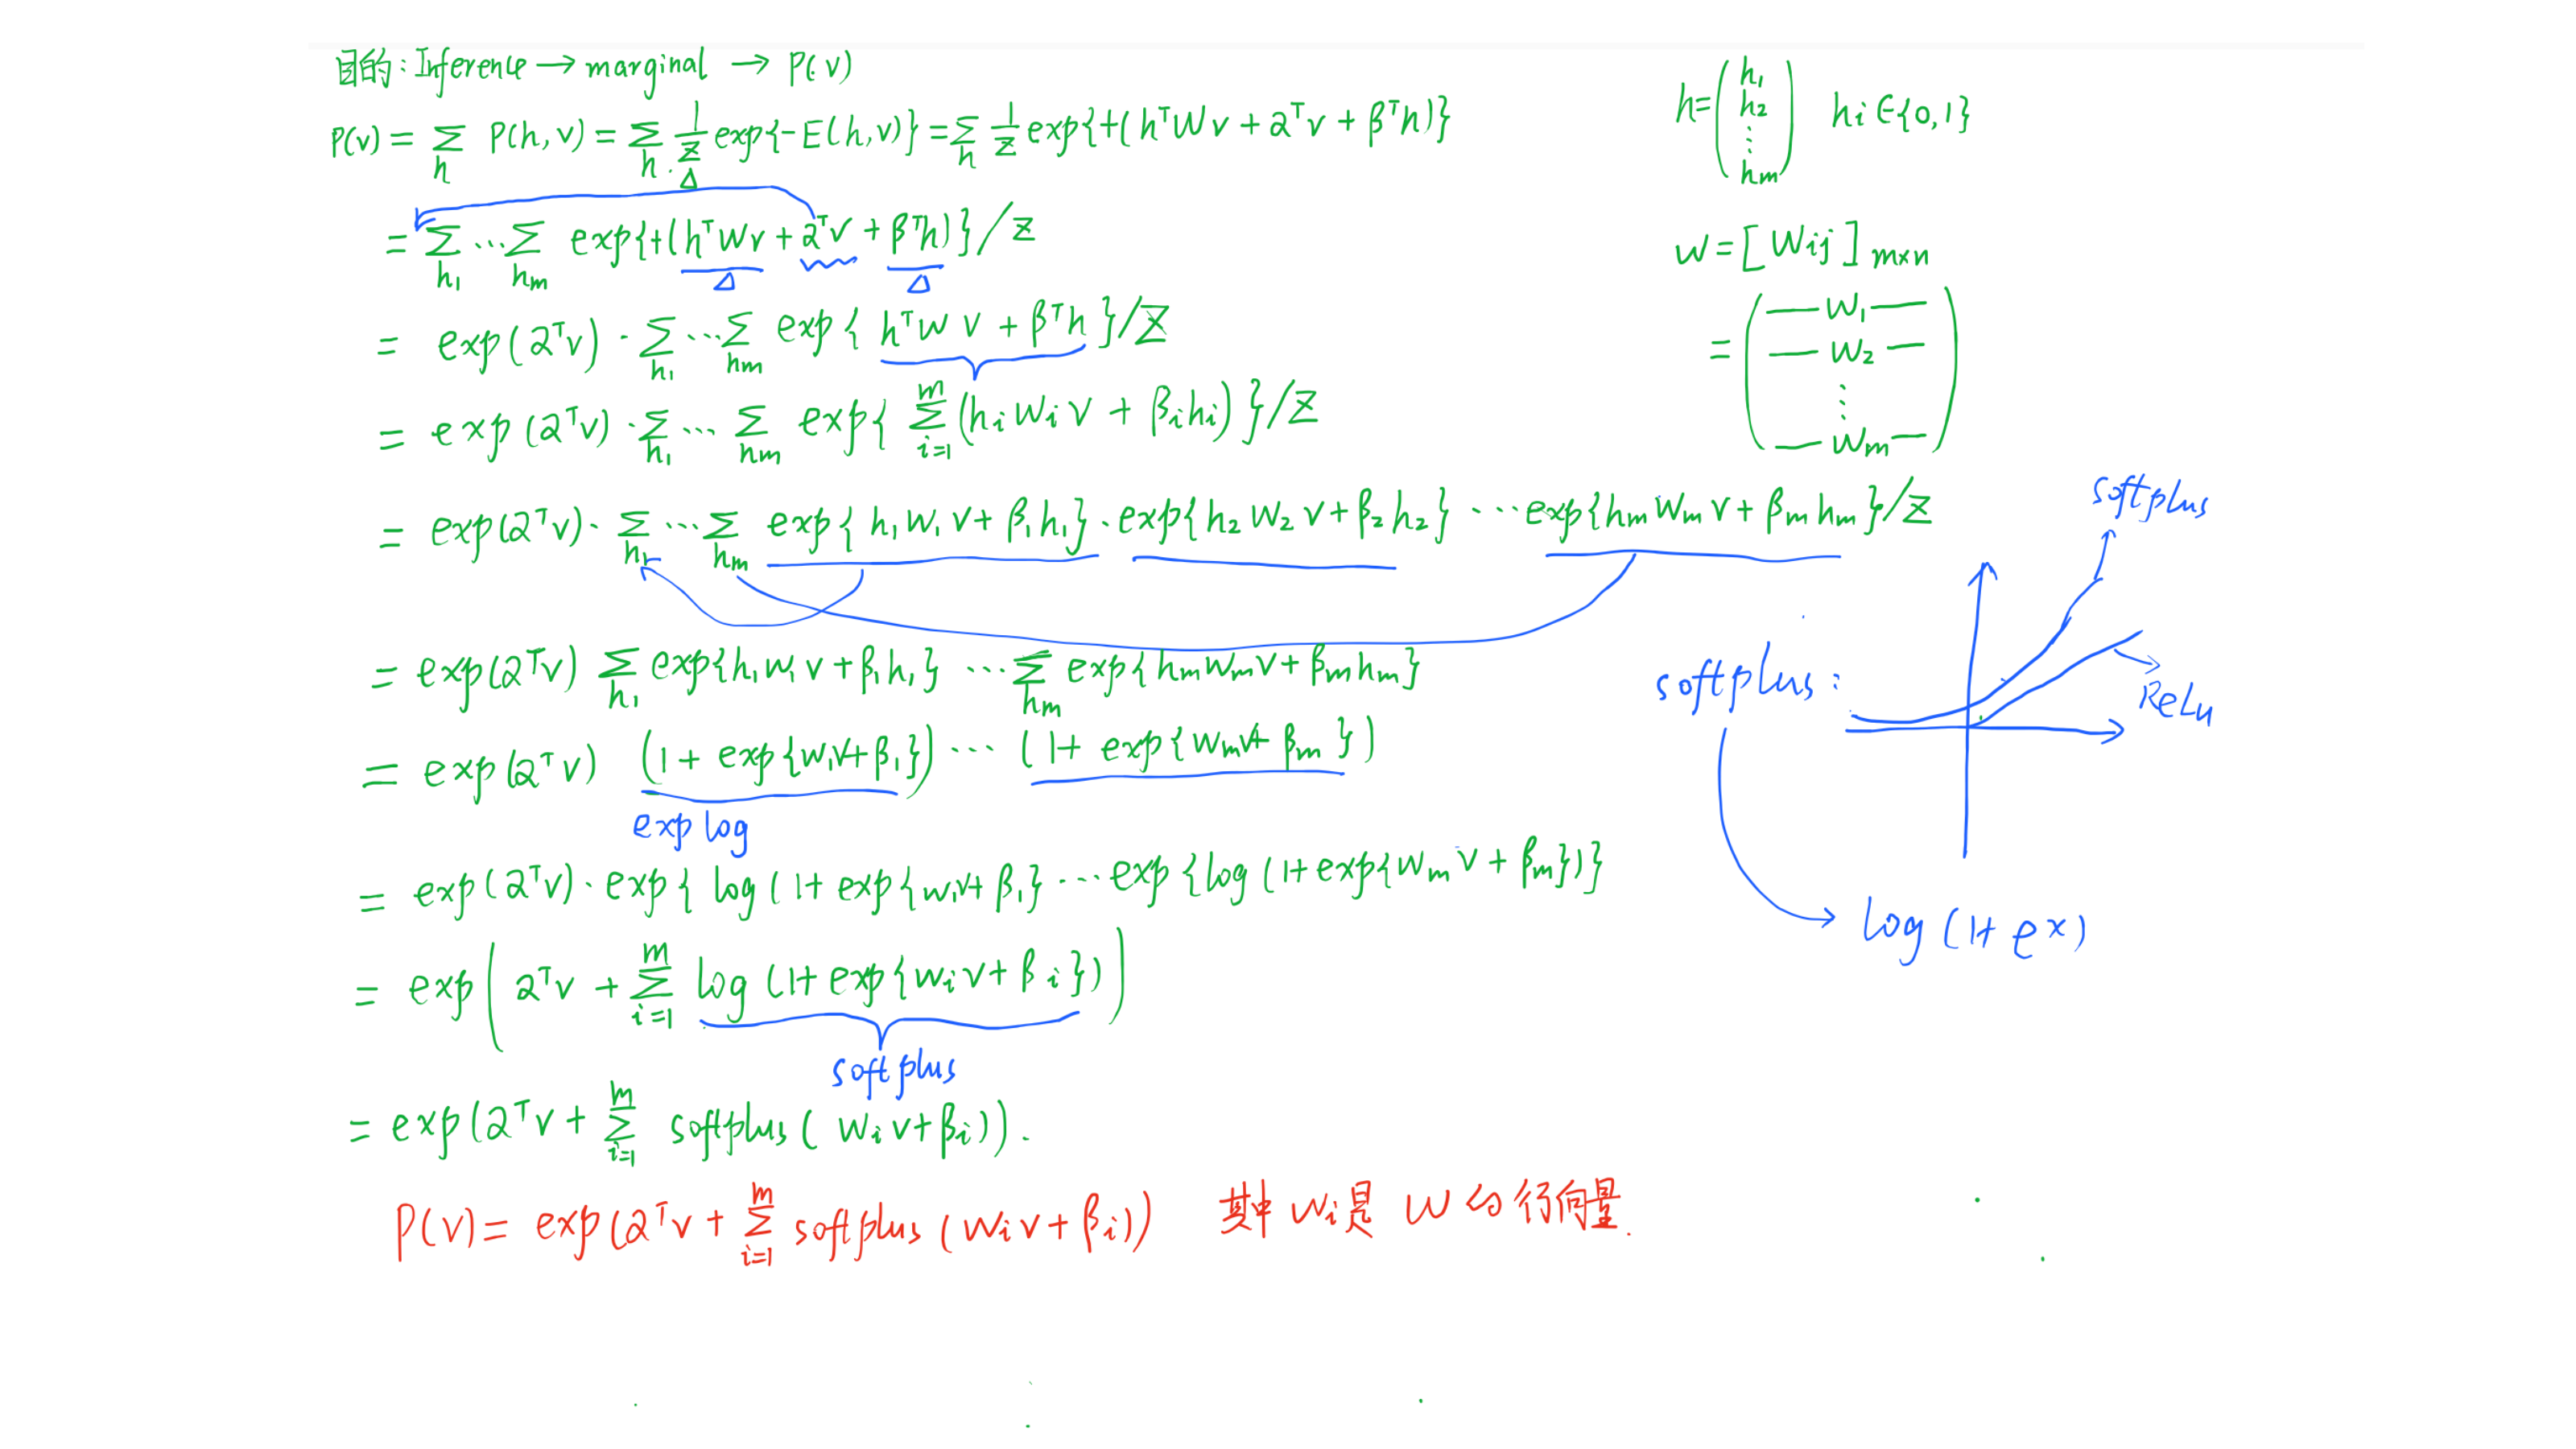 目的:Inference → marginal → P(v)
P(v) = Σ_h P(h,v) = Σ_h 1/Z exp{-E(h,v)} = Σ_h 1/Z exp{+(h^T W v + α^T v + β^T h)}
Δ
= Σ_{h1} ⋯ Σ_{hm} exp{+(h^T W v + α^T v + β^T h)}/Z
Δ Δ
= exp(α^T v) · Σ_{h1} ⋯ Σ_{hm} exp{ h^T W v + β^T h }/Z
= exp(α^T v) · Σ_{h1} ⋯ Σ_{hm} exp{ Σ_{i=1}^m (h_i w_i v + β_i h_i) }/Z
= exp(α^T v) · Σ_{h1} ⋯ Σ_{hm} exp{ h_1 w_1 v + β_1 h_1} · exp{h_2 w_2 v + β_2 h_2} ⋯ exp{h_m w_m v + β_m h_m}/Z
= exp(α^T v) Σ_{h1} exp{h_1 w_1 v + β_1 h_1} ⋯ Σ_{hm} exp{h_m w_m v + β_m h_m}
= exp(α^T v) (1 + exp{w_1 v + β_1}) ⋯ (1 + exp{w_m v + β_m})
exp log
= exp(α^T v) · exp{ log (1 + exp{w_1 v + β_1} ⋯ exp{log (1 + exp{w_m v + β_m})}
= exp( α^T v + Σ_{i=1}^m log (1 + exp{w_i v + β_i}) )
softplus
= exp(α^T v + Σ_{i=1}^m softplus( w_i v + β_i)).
P(v) = exp(α^T v + Σ_{i=1}^m softplus (w_i v + β_i)) 其中 w_i是 W 的 行向量.
h = ( h_1 h_2 ⋮ h_m ) h_i ∈ {0,1}
w = [ w_ij ]_{m×n}
= ( — w_1 — — w_2 — ⋮ — w_m — )
softplus
softplus:
ReLu
log (1 + e^x)